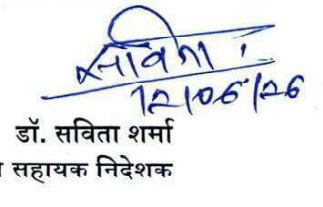 सविता
12/06/26
डॉ. सविता शर्मा
सहायक निदेशक